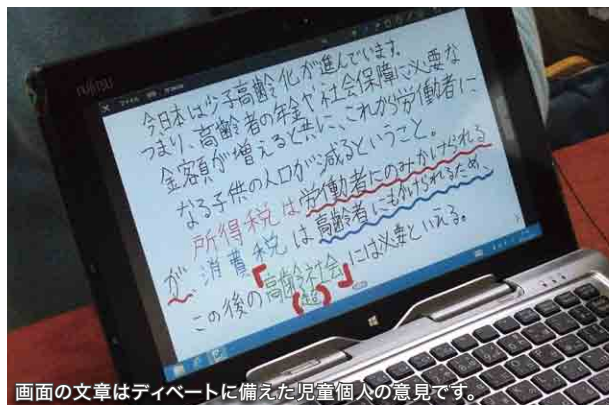 FUJITSU
今日本は少子高齢化が進んでいます。
つまり、高齢者の年金や社会保障に必要な
金額が増えると共に、これから労働者に
なる子供の人口が減るということ。
所得税は労働者にのみかけられる
が、消費税は高齢者にもかけられるため、
この後の「高齢社会」には必要といえる。
(超)
画面の文章はディベートに備えた児童個人の意見です。